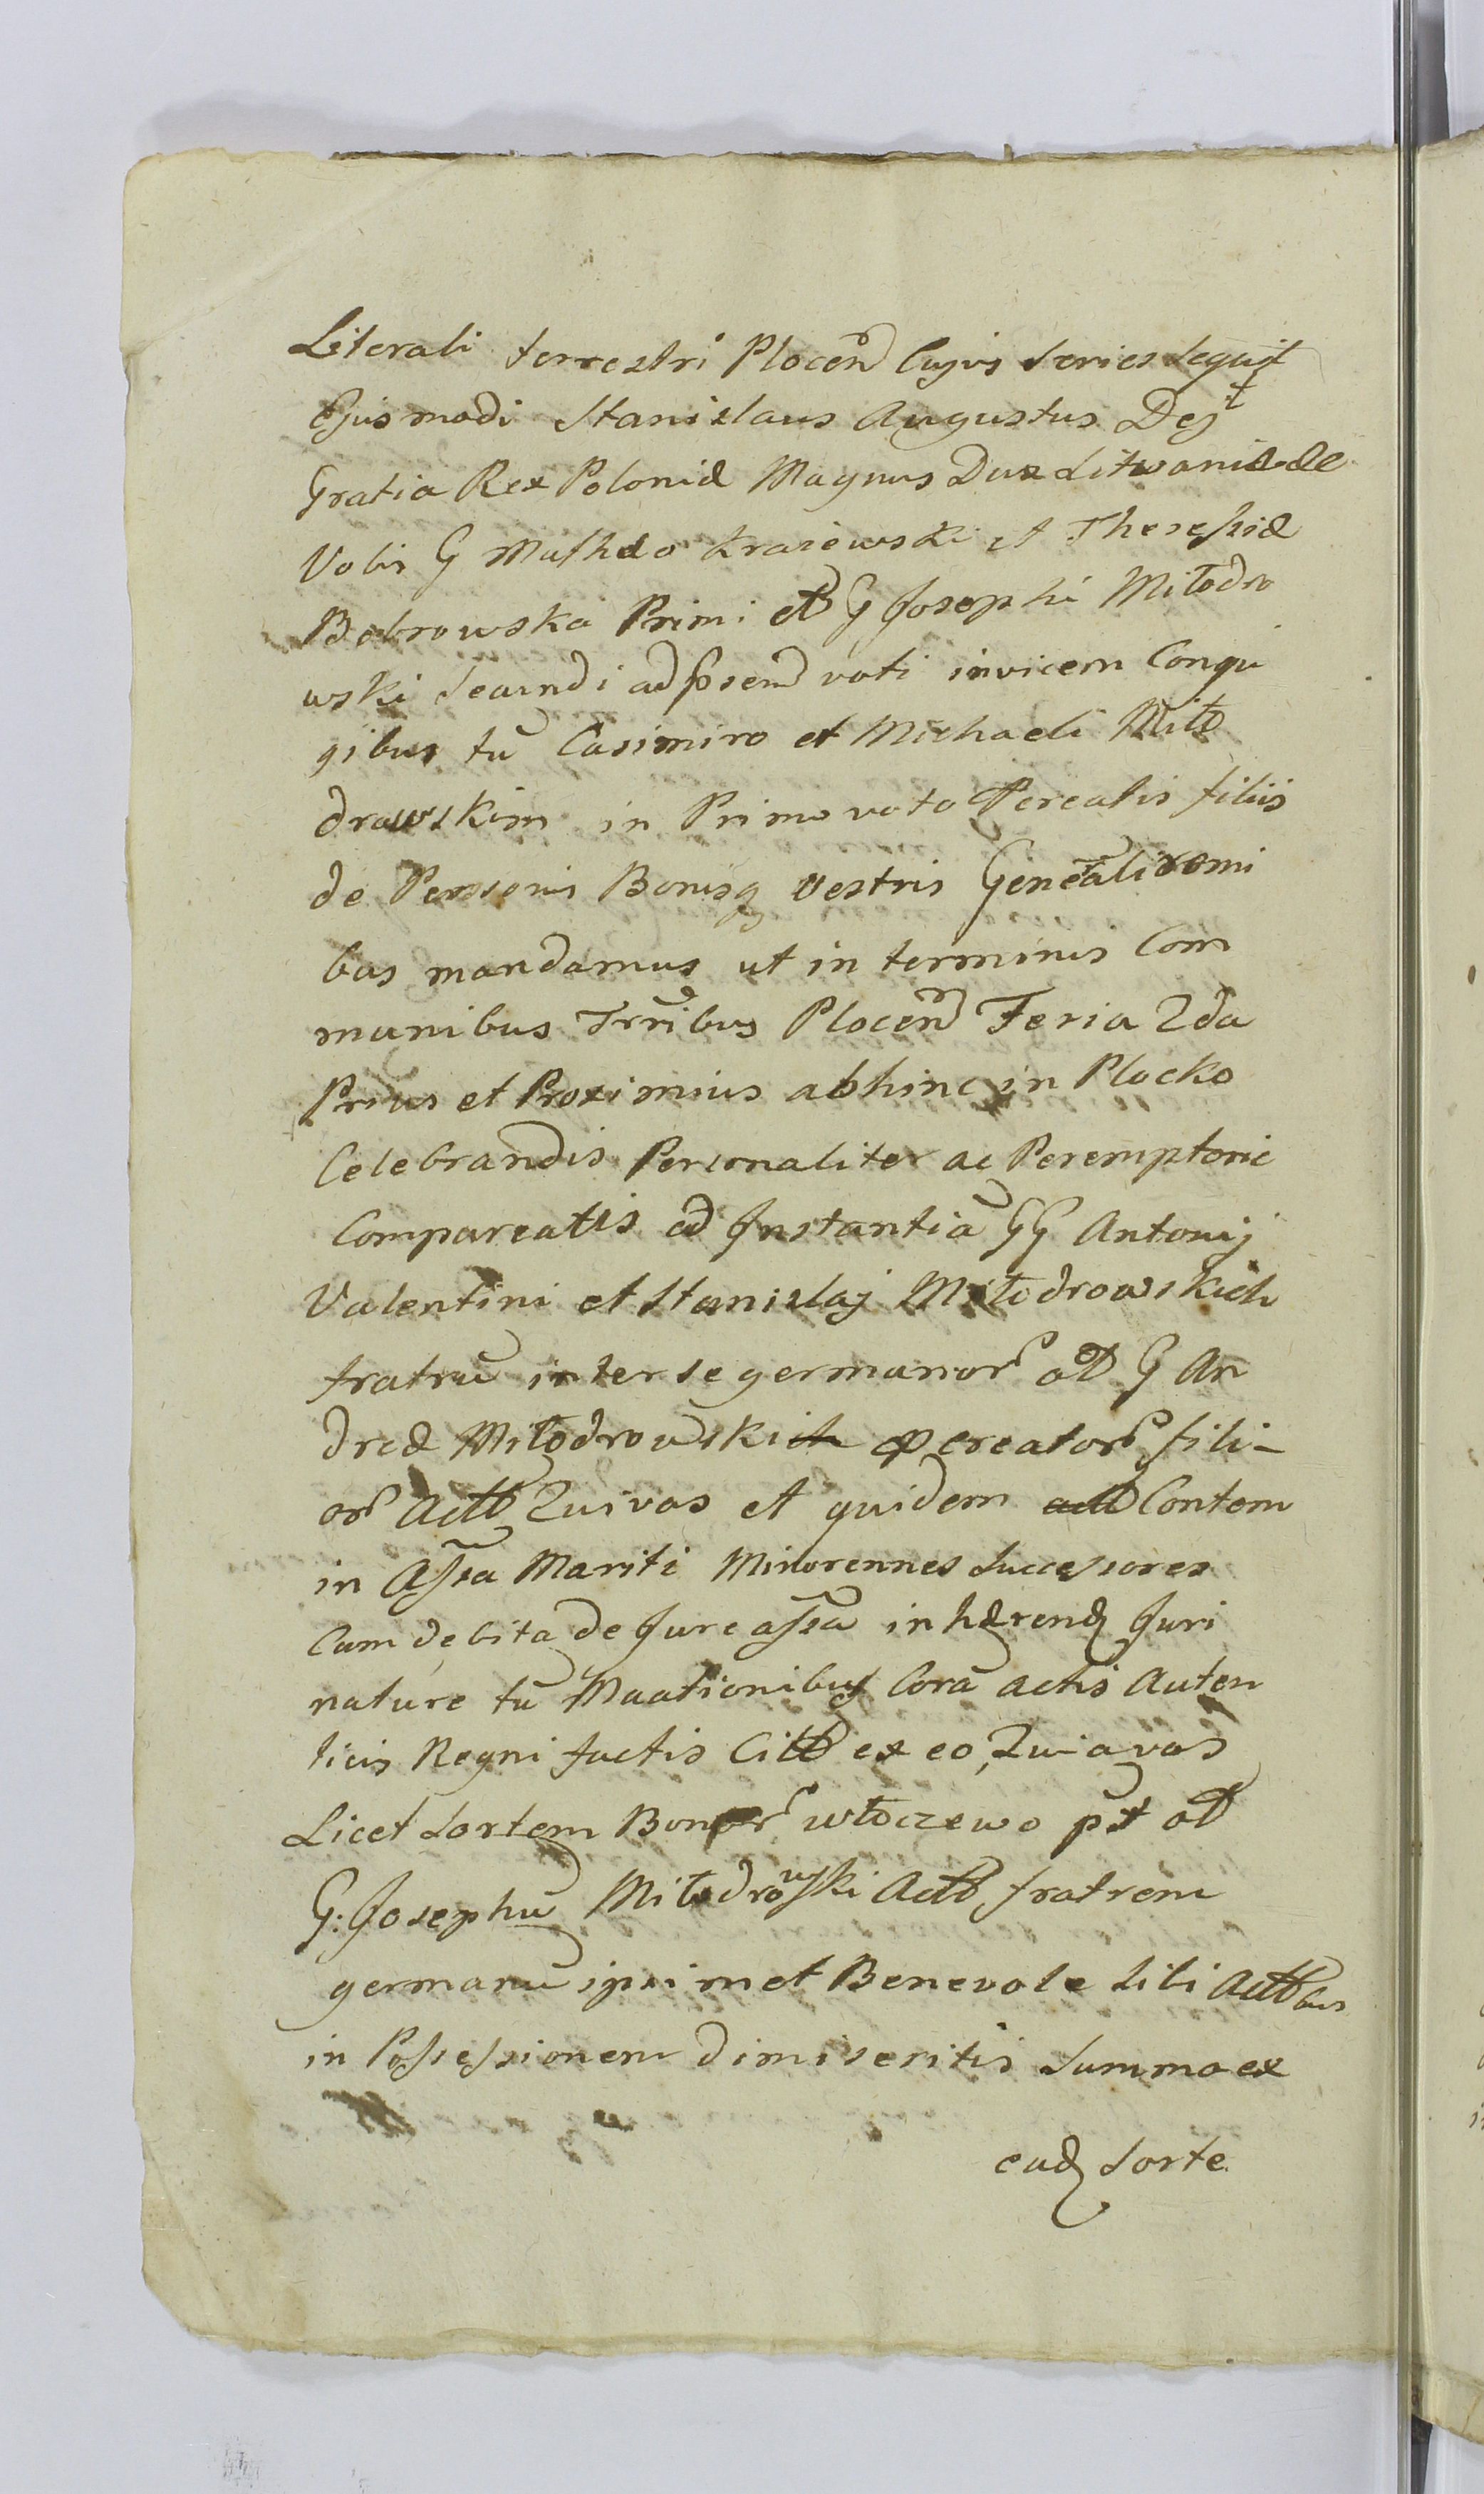 Literali terrestri Plocen Cujus Series Sequit
Ejusmodi Stanislaus Augustus Dej
Gratia Rex Poloniæ Magnus Dux Litwaniæ &c
Vobis G Mathæo Krasewski et Theresiæ
Bobrowska Primi et G Josephi Miłodro
wski Secundi ad præsens voti invicem Conju
gibus tū Casimiro et Michaeli Miło
drowskim in Primo voto Pcreatis filiis
de Personis Bonisq vestris Generālir omni
bus mandamus ut in terminis Com
munibus Trrībus Plocen Feria 2da
Prius et Proximius abhinc in Plocko
Celebrandis Personaliter ac Peremptorie
Compareatis ad Instantiā GG Antonij
Valentini et Stanislaj Miłodrowskich
fratrū inter se germanor ol G An
dreæ Miłodrowski pcreator fili-
or Actt Qui vos et quidem Contem
in Assa Mariti Minorennes Successores
Cum debita de Jure assa inhærend Juri
nature tū Inscriptionibus Corā Actis Auten
ticis Regni factis Citt ex eo, Quia vos
Licet Sortem Bonor Włoczewo pt ol
G: Josephū Miłodrowski Actt fratrem
germanū ipsimet Benevole sibi Acttbus
in Possessionem dimiseritis Summa ex
ead Sorte